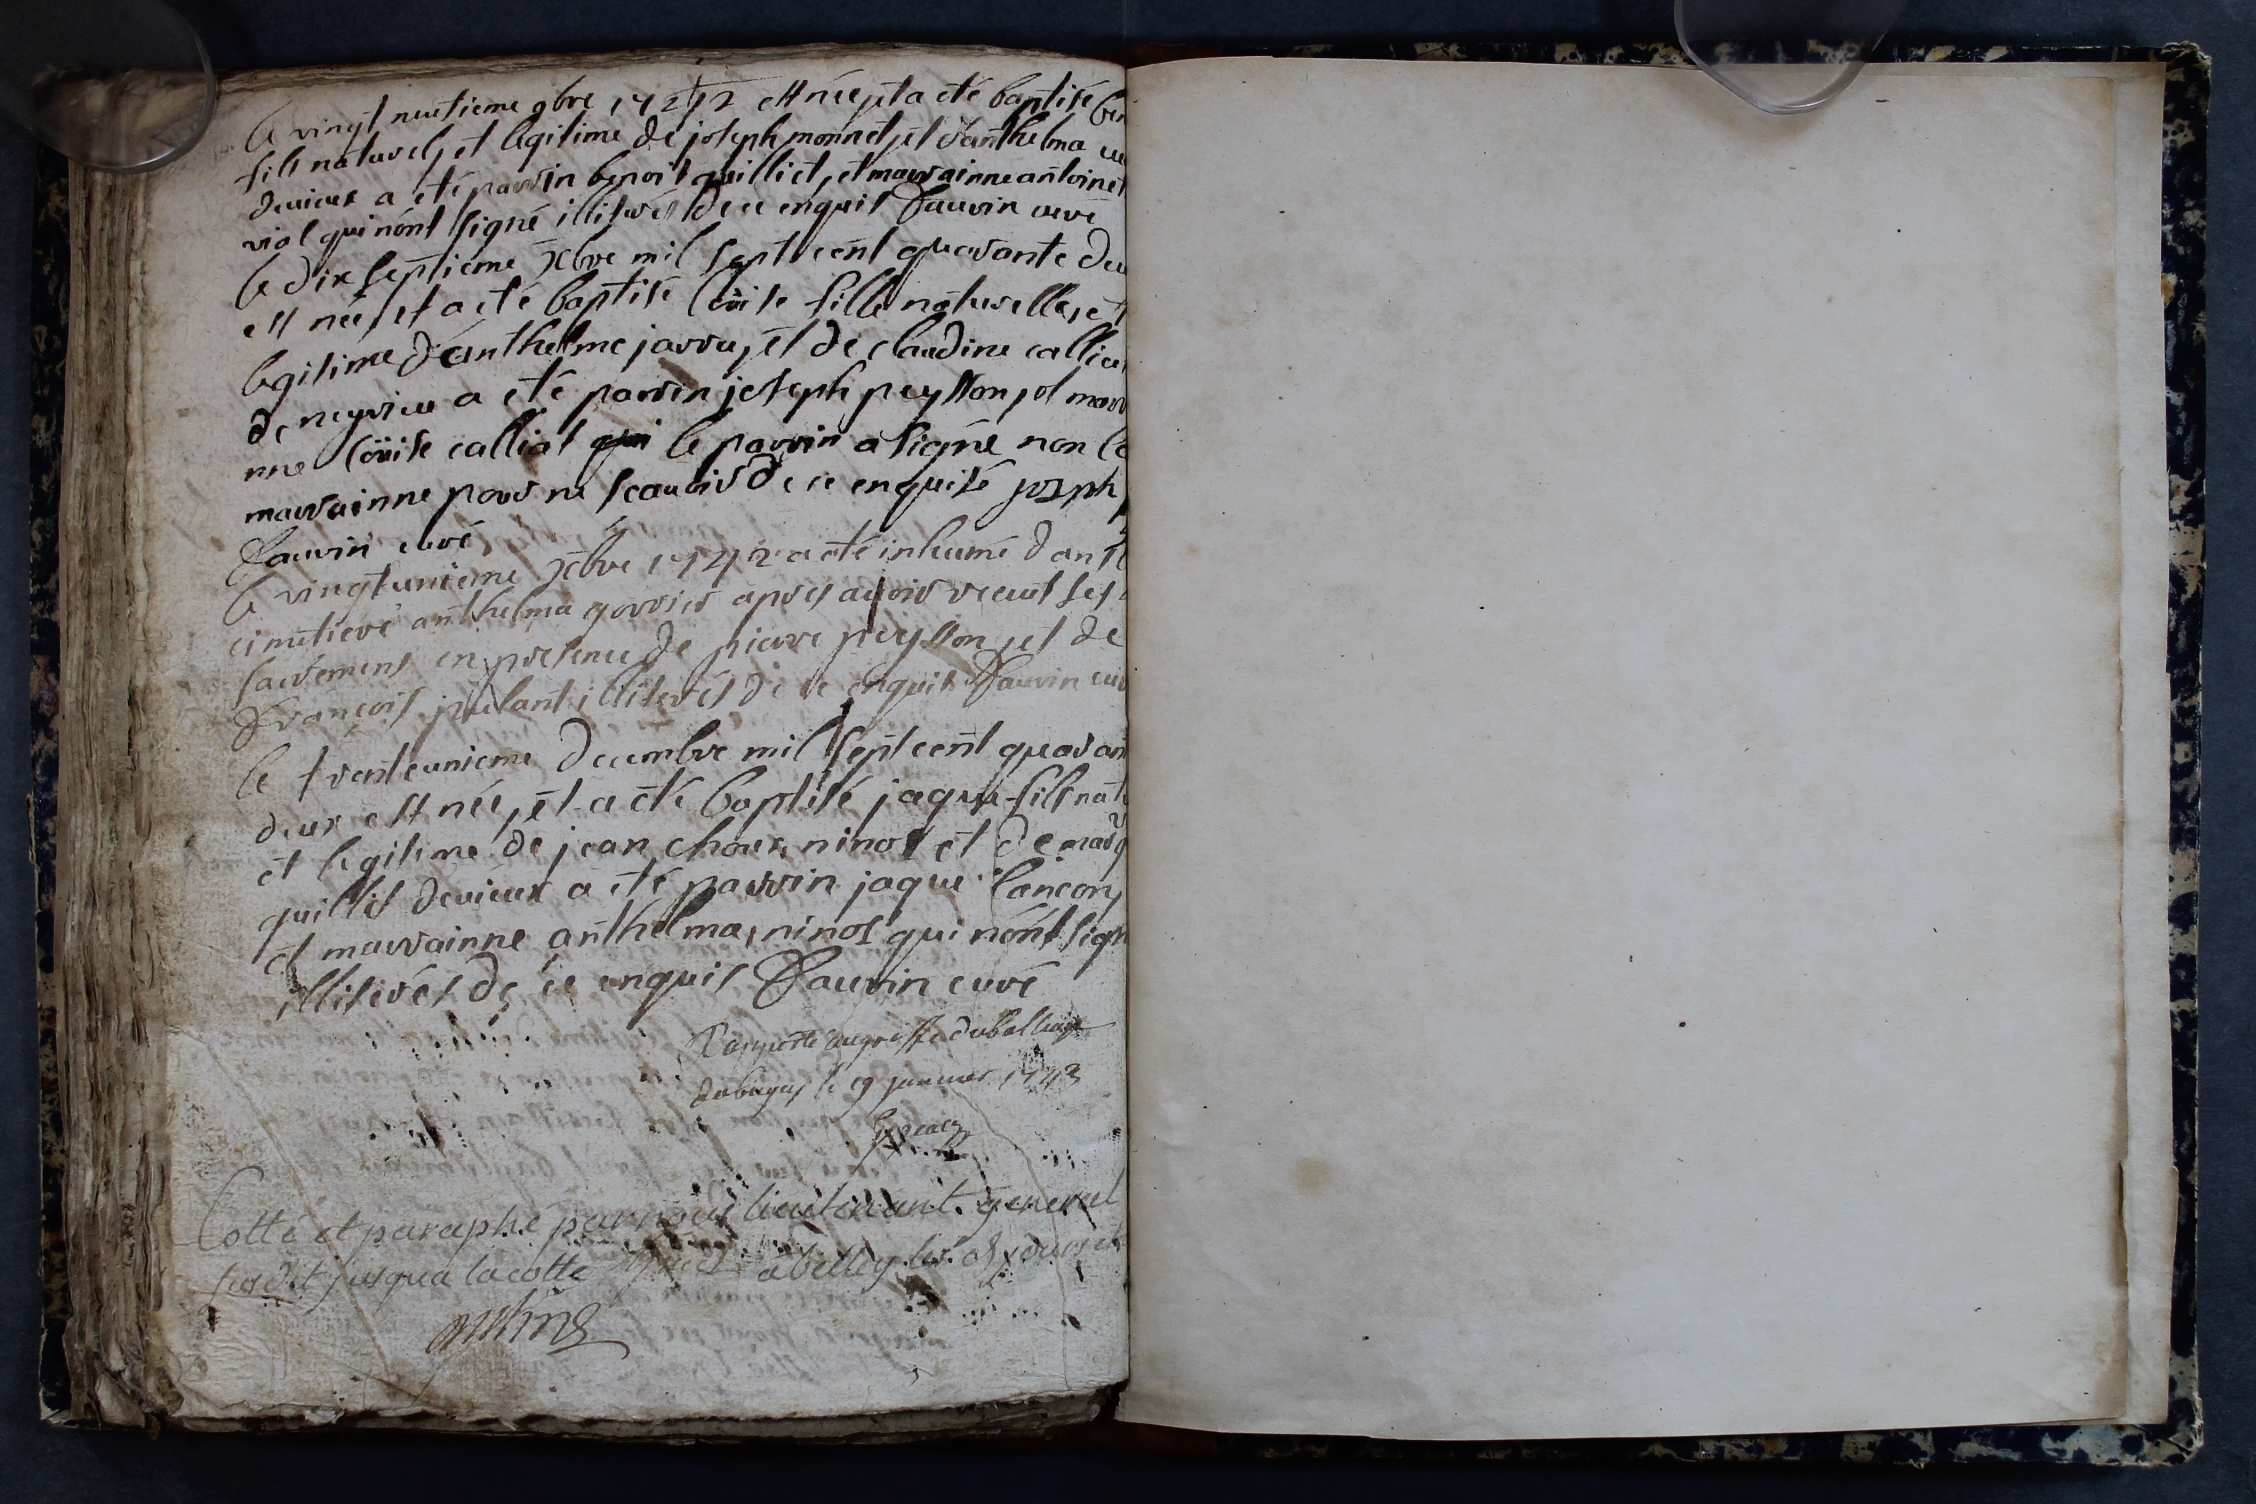 le vingt neutieme 9bre 1742 est née, et a eté baptisé ben
fils naturel, et legitime de joseph monnet, et d'anthelma
devieux a eté parrin benoit quilliet, et marrainne antoinet
vial qui n'ont signé illiterés de ce enquis Dauvin curé
le dix septieme xbre mil sept cent quarante deu
est née, et a eté baptisé loüise fille naturelle, et
legitime d'anthelme jarru, et de claudine callia
de neyrieu a eté parrin joseph peysson, et marr
nne loüise calliat le parrin a signé non la
marrainne pour ne scavoir de ce enquisé joseph p
Dauvin curé
le vingt unieme xbre 1742 a eté inhumé dans le
cimetiere anthelma gorrier apres avoir receut ses
sacremens en presence de pierre peysson, et de
françois illiterés de ce enquis Dauvin cur
le trenteunieme decembre mil sept cent quarant
deux est née, et a eté baptisé jaque fils natu
et legitime de jean ninot et de marg
quillet devieux a eté parrin jaque lancon
et marrainne anthelma, ninot qui n'ont sign
illiterés de ce enquis Dauvin curé
Rapporté au greffe du balliage
du bugey le 19 janvier 1743
Cotté et paraphé par nous lieutenant general
susdit jusqua la cotte a belley